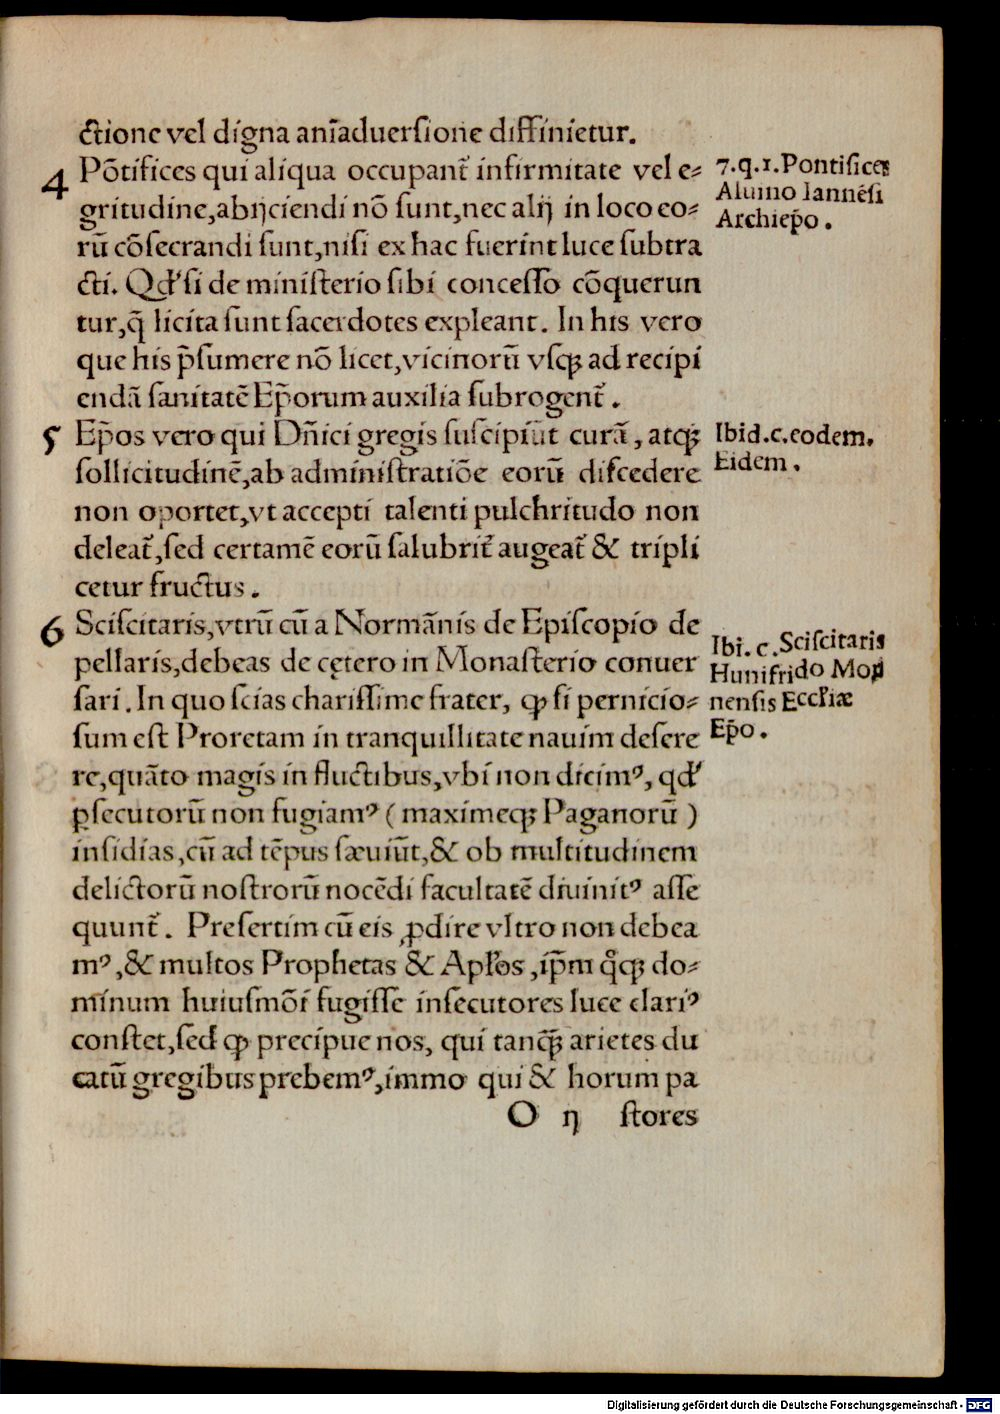 ctione vel digna aniāduersione diffinietur.
4 Pōtifices qui aliqua occupant̃ infirmitate vel e-
gritudine, abijciendi nō sunt, nec alij in loco eo-
rū cōsecrandi sunt, nisi ex hac fuerint luce subtra
cti. Qđ si de ministerio sibi concesso cōquerun
tur, q̄ licita sunt sacerdotes expleant. In his vero
que his p̄sumere nō licet, vicinorū vsqꝫ ad recipi
endā sanitatē Ep̄orum auxilia subrogent̃.
7.q.1. Pontifices
Aluino Iannēsi
Archiep̄o.
5 Ep̄os vero qui Dn̄ici gregis suscipiūt curā, atqꝫ
sollicitudinē, ab administratiōe eorū discedere
non oportet, vt accepti talenti pulchritudo non
deleat̃, sed certamē eorū salubrit̃ augeat̃ & tripli
cetur fructus.
Ibid.c.eodem.
Eidem.
6 Sciscitaris, vtrū cū a Normānis de Episcopio de
pellaris, debeas de cętero in Monasterio conuer
sari. In quo scias charissime frater, ꝙ si pernicio-
sum est Proretam in tranquillitate nauim desere
re, quāto magis in fluctibus, vbi non dicimꝰ, qđ
ꝑsecutorū non fugiamꝰ ( maximeqꝫ Paganorū )
insidias, cū ad tēpus sæuiūt, & ob multitudinem
delictorū nostrorū nocēdi facultatē diuinitꝰ asse
quunt̃. Presertim cū eis ꝓdire vltro non debea
mꝰ, & multos Prophetas & Apl'os, ip̄m q̊qꝫ do-
minum huiusmōi fugisse insecutores luce clariꝰ
constet, sed ꝙ precipue nos, qui tanqꝫ̄ arietes du
catū gregibus prebemꝰ, immo qui & horum pa
Ibi. c. Sciscitaris
Hunifrido Moꝝ
nensis Eccl'iæ
Ep̄o.
O ij stores
Digitalisierung gefördert durch die Deutsche Forschungsgemeinschaft - DFG